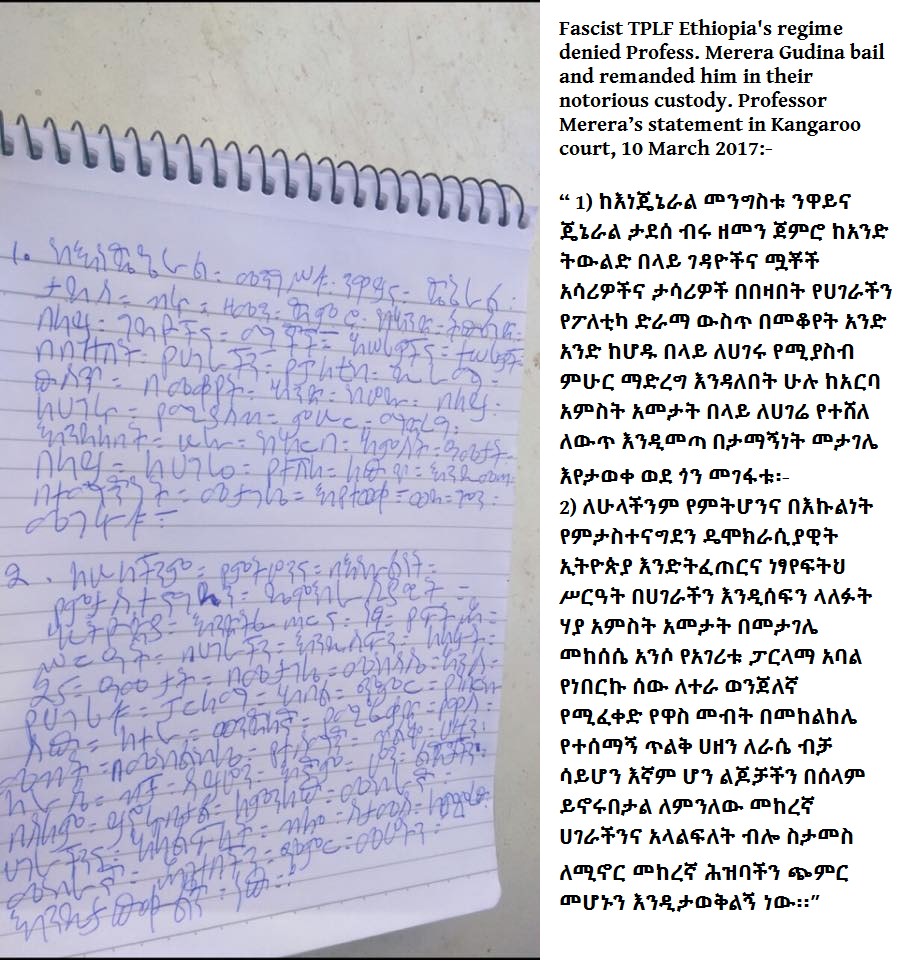 1. ከእነጄኔራል፡ መንግሥቱ፡ ንዋይና፡ ጄኔራል፡
ታደሰ፡ ብሩ፡ ዘመን፡ ጀምሮ፡ ከአንድ፡ ትውልድ፡
በላይ፡ ገዳዮችና፡ ሟቾች፡ አሣሪዎችና፡ ታሣሪዎች፡
በበዛበት፡ የሀገራችን፡ የፖለቲካ፡ ድራማ፡
ውስጥ፡ በመቆየት፡ አንድ፡ ከሆዱ፡ በላይ፡
ለሀገሩ፡ የሚያስብ፡ ምሁር፡ ማድረግ፡
እንዳለበት፡ ሁሉ፡ ከአርባ፡ አምስት፡ ዓመታት፡
በላይ፡ ለሀገሬ፡ የተሸለ፡ ለውጥ፡ እንዲመጣ፡
በታማኝነት፡ መታገሌ፡ እየታወቀ፡ ወደ፡ ጎን፡
መገፋቴ፡
2. ለሁላችንም፡ የምትሆንና፡ በእኩልነት፡
የምታስተናግደን፡ ዴሞክራሲያዊት፡
ኢትዮጵያ፡ እንድትፈጠርና፡ ነፃ፡ የፍትህ፡
ሥርዓት፡ በሀገራችን፡ እንዲሰፍን፡ ላለፉት፡
ዓመታት፡ በመታገሌ፡ መከሰሴ፡ አንሶ፡
የሀገሪቱ፡ ፓርላማ፡ አባል፡ የነበርኩ፡
ሰው፡ ለተራ፡ ወንጀለኛ፡ የሚፈቀድ፡ የዋስ፡
መብት፡ በመከልከሌ፡ የተሰማኝ፡ ጥልቅ፡ ሀዘን፡
ለራሴ፡ ብቻ፡ ሳይሆን፡ እኛም፡ ሆን፡ ልጆቻችን፡
በሰላም፡ ይኖሩበታል፡ ለምንለው፡ መከረኛ፡
ሀገራችንና፡ አላልፍለት፡ ብሎ፡ ስታመስ፡ ለሚኖር፡
መከረኛ፡ ሕዝባችን፡ ጭምር፡ መሆኑን፡
እንዲታወቅልኝ፡ ነው፡፡
Fascist TPLF Ethiopia's regime
denied Profess. Merera Gudina bail
and remanded him in their
notorious custody. Professor
Merera’s statement in Kangaroo
court, 10 March 2017:-
“ 1) ከእነጄኔራል መንግስቱ ንዋይና
ጄኔራል ታደሰ ብሩ ዘመን ጀምሮ ከአንድ
ትውልድ በላይ ገዳዮችና ሟቾች
አሳሪዎችና ታሳሪዎች በበዛበት የሀገራችን
የፖለቲካ ድራማ ውስጥ በመቆየት አንድ
አንድ ከሆዱ በላይ ለሀገሩ የሚያስብ
ምሁር ማድረግ እንዳለበት ሁሉ ከአርባ
አምስት አመታት በላይ ለሀገሬ የተሸለ
ለውጥ እንዲመጣ በታማኝነት መታገሌ
እየታወቀ ወደ ጎን መገፋቱ፡-
2) ለሁላችንም የምትሆንና በእኩልነት
የምታስተናግደን ዴሞክራሲያዊት
ኢትዮጵያ እንድትፈጠርና ነፃየፍትህ
ሥርዓት በሀገራችን እንዲሰፍን ላለፉት
ሃያ አምስት አመታት በመታገሌ
መከሰሴ አንሶ የአገሪቱ ፓርላማ አባል
የነበርኩ ሰው ለተራ ወንጀለኛ
የሚፈቀድ የዋስ መብት በመከልከሌ
የተሰማኝ ጥልቅ ሀዘን ለራሴ ብቻ
ሳይሆን እኛም ሆን ልጆቻችን በሰላም
ይኖሩበታል ለምንለው መከረኛ
ሀገራችንና አላልፍለት ብሎ ስታመስ
ለሚኖር መከረኛ ሕዝባችን ጭምር
መሆኑን እንዲታወቅልኝ ነው፡፡”